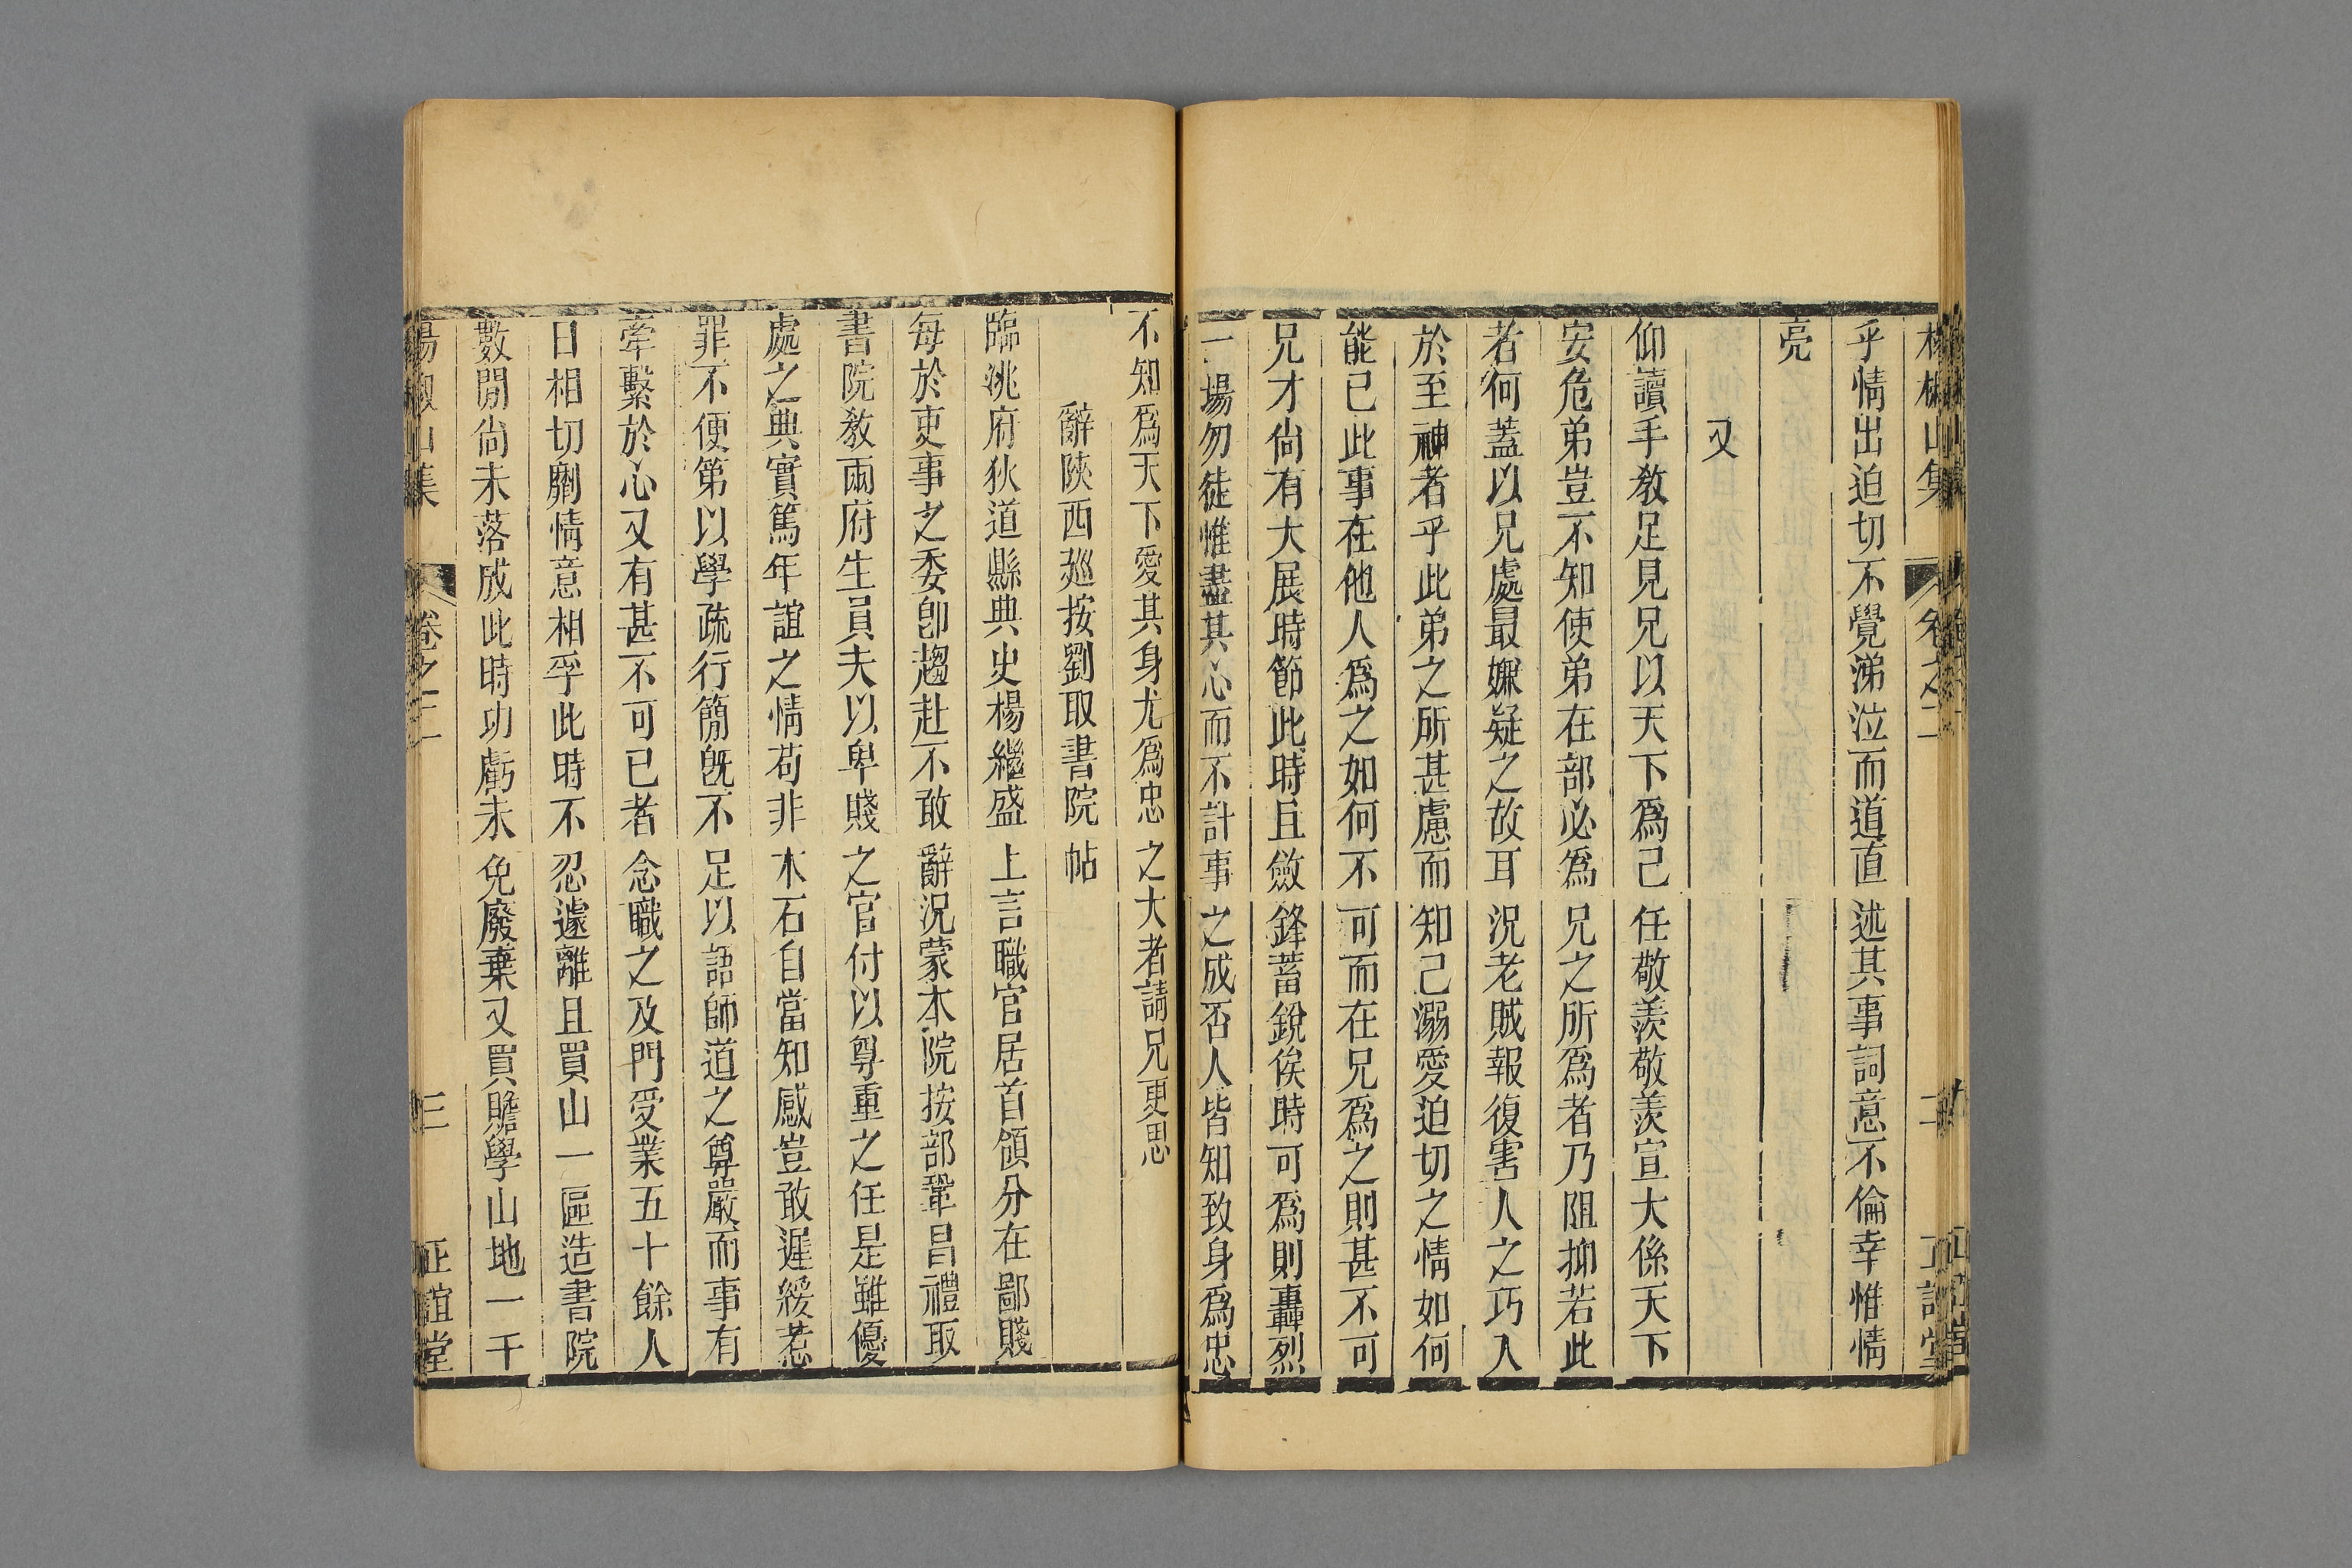 山集
卷之二
二
乎情出迫切不覺涕泣而道直述其事詞意不倫幸惟情
亮
又
仰讀手敎足見兄以天下爲己任敬羨敬羨宣大係天下
安危弟豈不知使弟在部必爲兄之所爲者乃阻抑若此
者何蓋以兄處最嫌疑之故耳況老賊報復害人之巧入
於至神者乎此弟之所甚慮而知己溺愛迫切之情如何
能已此事在他人爲之如何不可而在兄爲之則甚不可
兄才尙有大展時節此時且斂鋒蓄銳俟時可爲則轟烈
一場勿徒惟盡其心而不計事之成否人皆知致身爲忠
不知爲天下愛其身尤爲忠之大者請兄更思
辭陝西廵按劉取書院帖
臨洮府狄道縣典史楊繼盛上言職官居首領分在鄙賤
每於吏事之委卽趨赴不敢辭況蒙本院按部鞏昌禮取
書院敎兩府生員夫以卑賤之官付以尊重之任是雖優
處之典實篤年誼之情苟非木石自當知感豈敢遲緩惹
罪不便第以學疏行簡旣不足以語師道之尊嚴而事有
牽繫於心又有甚不可已者念職之及門受業五十餘人
日相切劘情意相孚此時不忍遽離且買山一區造書院
數閒尙未落成此時功虧未免廢棄又買贍學山地一千
楊椒山集
卷之二
三
正誼堂